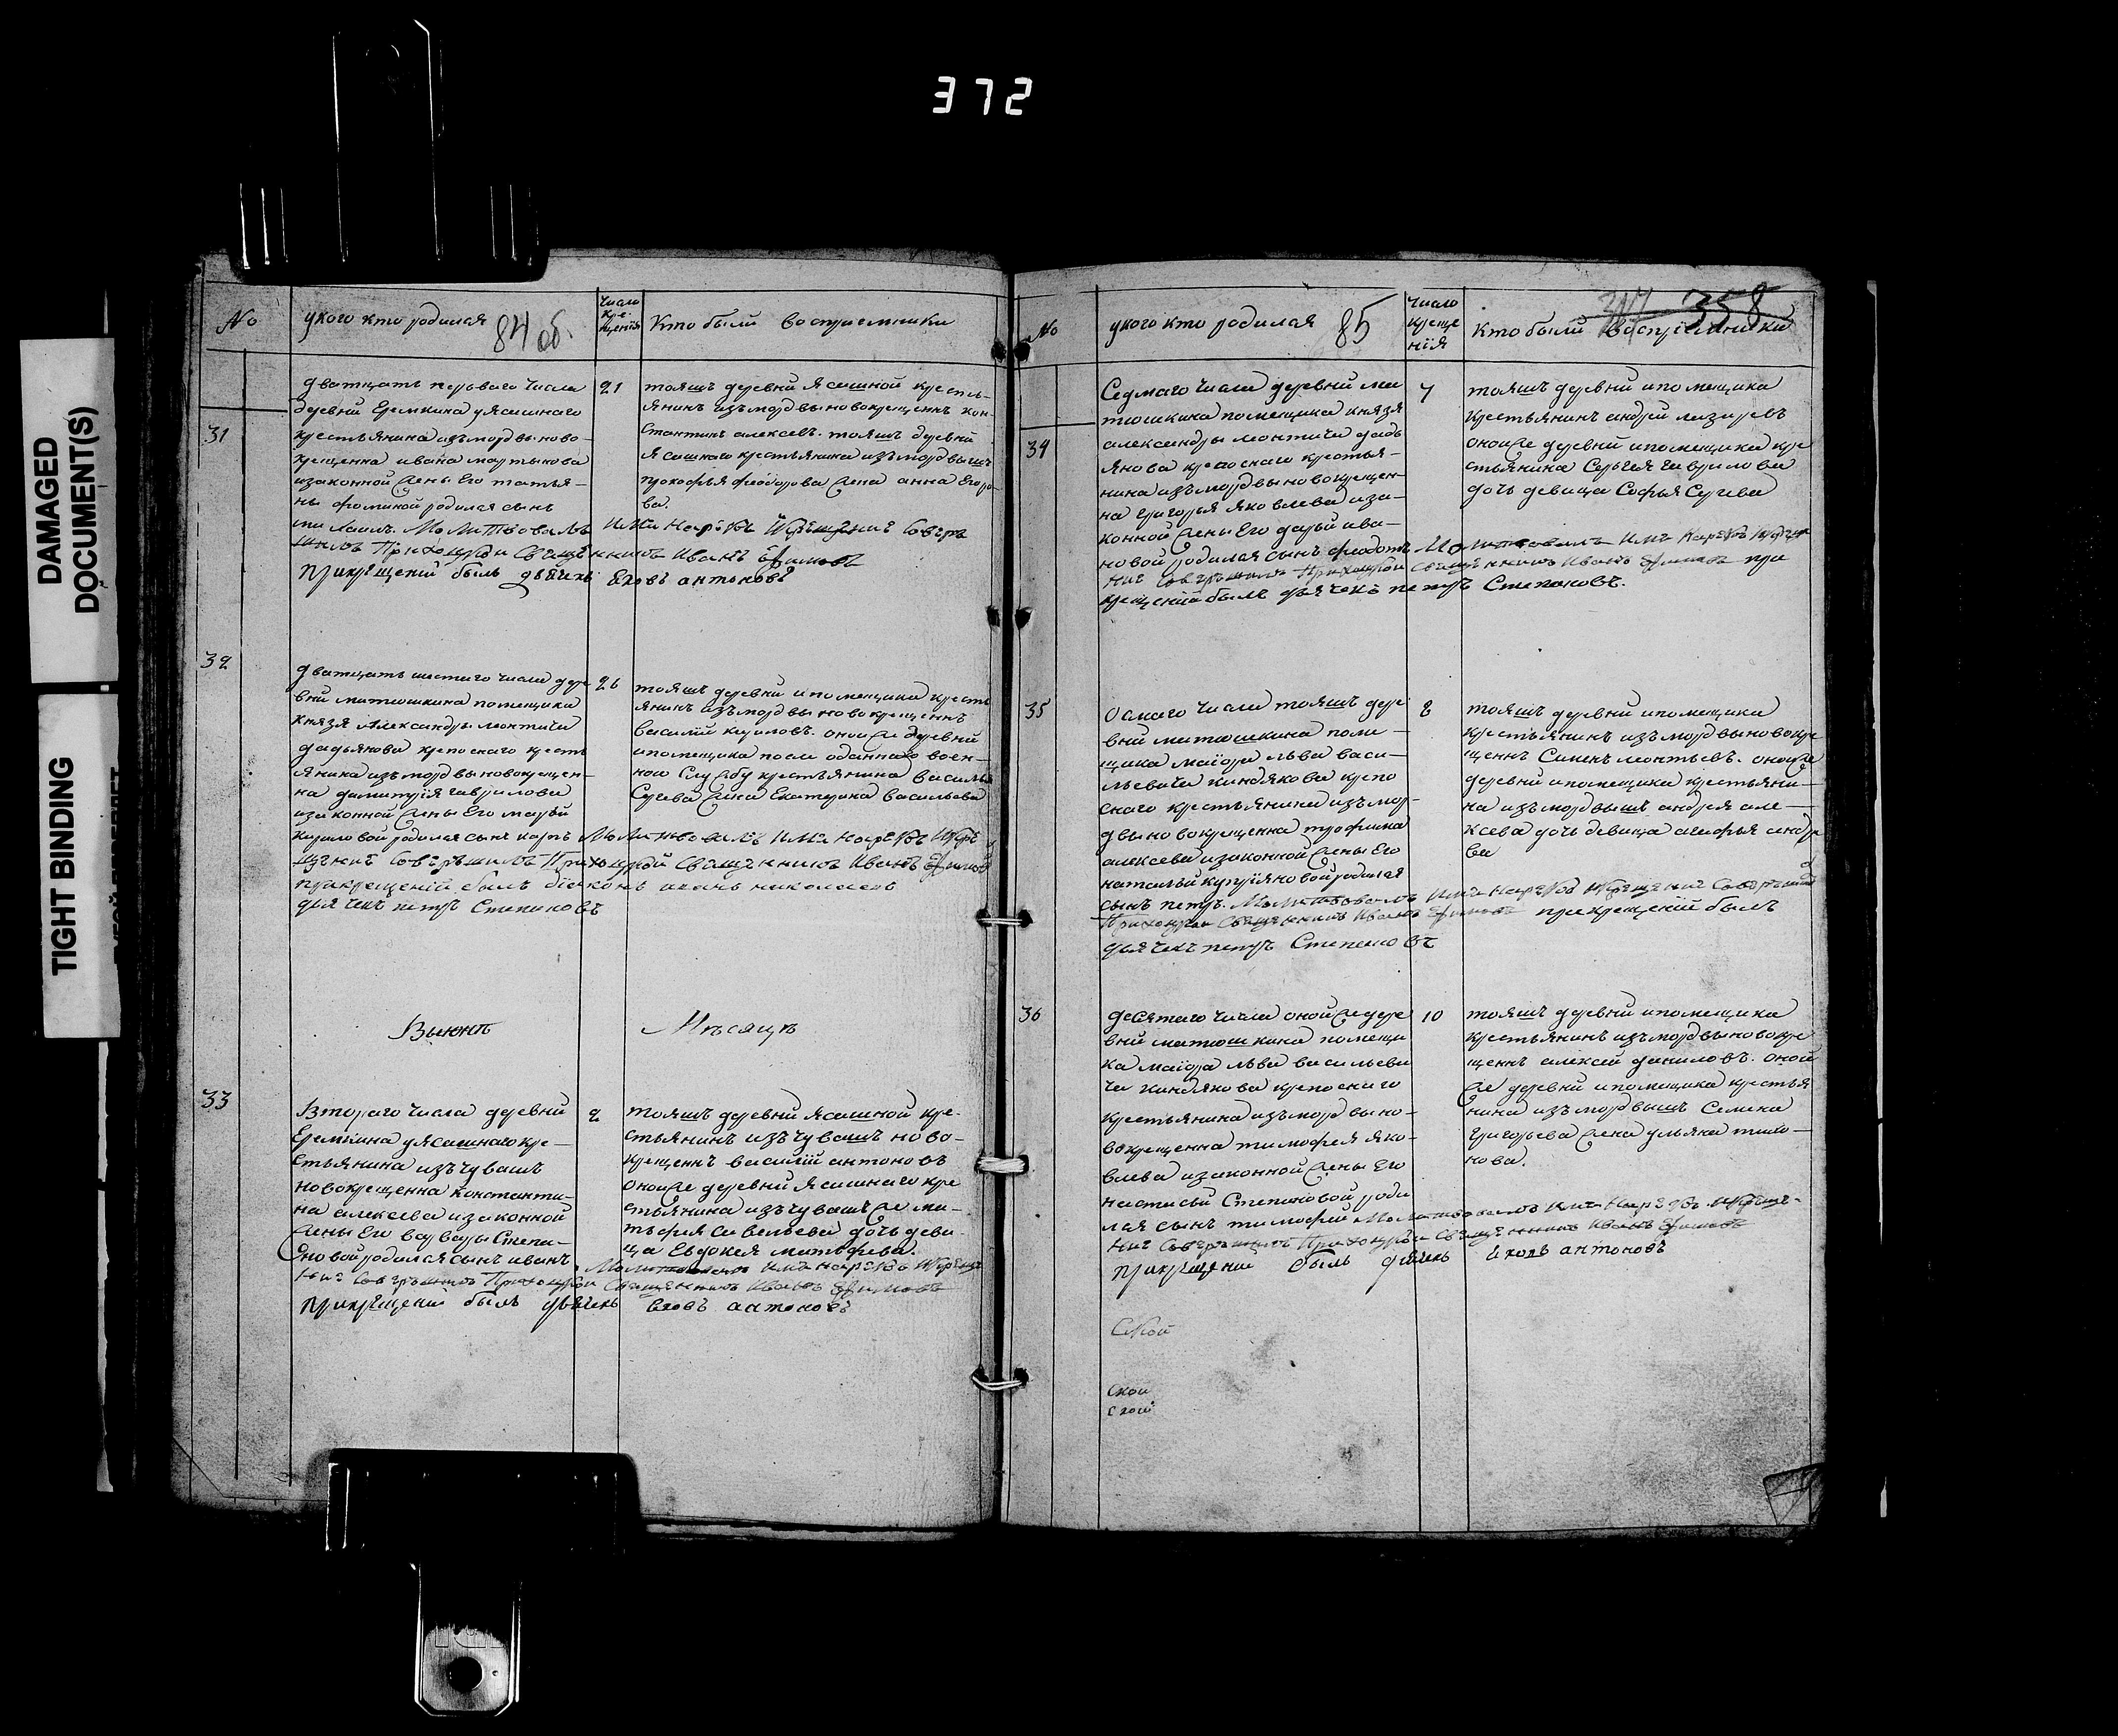 372
DAMAGED
DOCUMENT(S)
TIGHT BINDING
No
укого кто родился
84 об.
число
кре-
щения
кто были восприемники
31
дватцать перваго числа
деревни Еремкина у ясашнаго
крестьянина изъ мордвы ново-
крещенна ивана мартынова
изаконной жены Его татья-
ны фоминой родился сынъ
Молитвовалъ имя нарѣкъ и крѣщение совѣрш
шилъ Приходской Священникъ Иванъ Ефимовъ
при крещении былъ дьячекъ Яковъ антоновъ
21
тояжъ деревни ясашной кресть-
янинъ изъ мордвы новокрещеннъ кон-
стантинъ алексеевъ. тояжъ деревни
ясашнаго крестьянина изъ мордвы жъ
прокофья феодорова жена анна Егоро-
ва.
32
дватцать шестаго числа дере
вни матюшкина помещика
князя Александры леонтича
дадьянова крепоснаго кресть
янина изъ мордвы новокрещен-
на димитрія гаврилова
изаконной жены Его марьи
кириловой родился сынъ карпъ Молитвовалъ имя нарѣкъ и крѣ
щение совѣршилъ Приходской Священникъ Иванъ Ефимовъ
при крещении былъ діяконъ иванъ николаевъ
дьячекъ петръ Степановъ
26
тояжъ деревни и помещика кресть
янинъ изъ мордвы новокрещеннъ
василий кириловъ. оной же деревни
и помещика после оданнаго воен-
ною службу крестьянина василья
Сергеева жена Екатерина васильева
Вьюнѣ
Мѣсяцѣ
33
Втораго числа деревни
Еремкина у ясашнаго кре-
стьянина изъ чувашъ
новокрещенна константи-
на алексеева изаконной
жены Его варвары Степа-
новой родился сынъ иванъ
Молитвовалъ имя нарѣкъ и крѣще
ние совѣршилъ Приходской Священникъ Иванъ Ефимовъ
при крещении былъ дьячекъ Яковъ антоновъ
2
тояжъ деревни ясашной кре-
стьянинъ изъ чувашъ ново-
крещеннъ василій антоновъ
оной же деревни ясашнаго кре
стьянина изъ чувашъ же ма-
тьфея савельева дочь деви-
ца Евдокея матьфеева.
No
укого кто родился
85
число
креще
нія
358
кто были воспріемники
34
Седмаго числа деревни ма
тюшкина помещика князя
александры леонтича дадь
янова крепоснаго крестья-
нина изъ мордвы новокрещен-
на григорья яковлева иза-
конной жены Его дарьи ива-
новой родился сынъ феодотъ Молитвовалъ имя нарѣкъ и крѣще
ние совѣршилъ Приходской Священникъ Иванъ Ефимовъ при
крещении былъ дьячекъ петръ Степановъ.
7
тояжъ деревни и помещика
крестьянинъ андрей лазаревъ
оной же деревни и помещика кре
стьянина Сергея гаврилова
дочь девица Софья Сергеева
35
Осмаго числа тояжъ дере
вни матюшкина поме-
щика маіора льва васи-
льевича киндякова крепо
снаго крестьянина изъ мор-
двы новокрещенна трофима
алексеева изаконной жены Его
натальи куприяновой родился
сынъ петръ. Молитвовалъ имя нарѣкъ и крѣщение совѣршилъ
Приходской Священникъ Иванъ Ефимовъ при крещении былъ
дьячекъ петръ Степановъ
8
тояжъ деревни и помещика
крестьянинъ изъ мордвы новокре
щеннъ Семенъ леонтьевъ. оной же
деревни и помещика крестьяни-
на изъ мордвы жъ андрея але-
ксеева дочь девица агафья андре
ева
36
десятаго числа оной же дере
вни матюшкина помещи
ка маіора льва васильеви
ча киндякова крепоснаго
крестьянина изъ мордвы но-
вокрещенна тимофея яко-
влева изаконной жены Его
настасьи Степановой роди
лся сынъ тимофей Молитвовалъ имя нарѣкъ и крѣще-
ние совѣршилъ Приходской Священникъ Иванъ Ефимовъ
при крещении былъ дьячекъ Яковъ антоновъ
10
тояжъ деревни и помещика
крестьянинъ изъ мордвы новокре
щеннъ алексей даниловъ. оной
же деревни и помещика крестья
нина изъ мордвы жъ Семена
григорьева жена ульяна тихо-
нова.
Ской
Ской
Ской